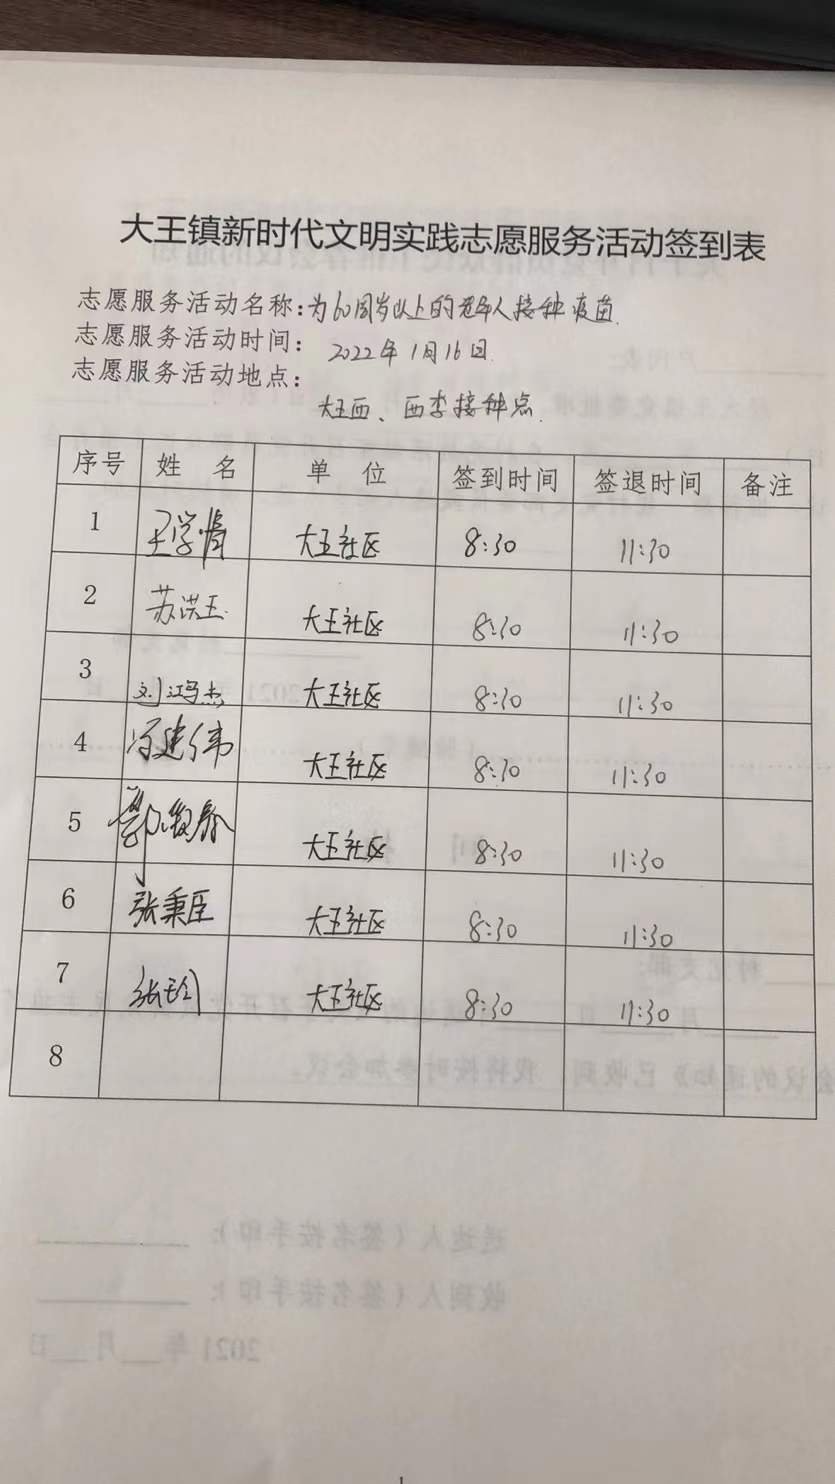 大王镇新时代文明实践志愿服务活动签到表
志愿服务活动名称:为60周岁以上的老年人接种疫苗.
志愿服务活动时间: 2022年1月16日.
志愿服务活动地点:
大王西、西李接种点.
序号 姓 名 单 位 签到时间 签退时间 备注
1 王学情 大王社区 8:30 11:30
2 苏洪玉 大王社区 8:30 11:30
3 刘鸿杰 大王社区 8:30 11:30
4 冯建伟 大王社区 8:30 11:30
5 大王社区 8:30 11:30
6 张秉臣 大王社区 8:30 11:30
7 大王社区 8:30 11:30
8
送达人(签名按手印):
收到人(签名按手印):
2021年__月__日
1